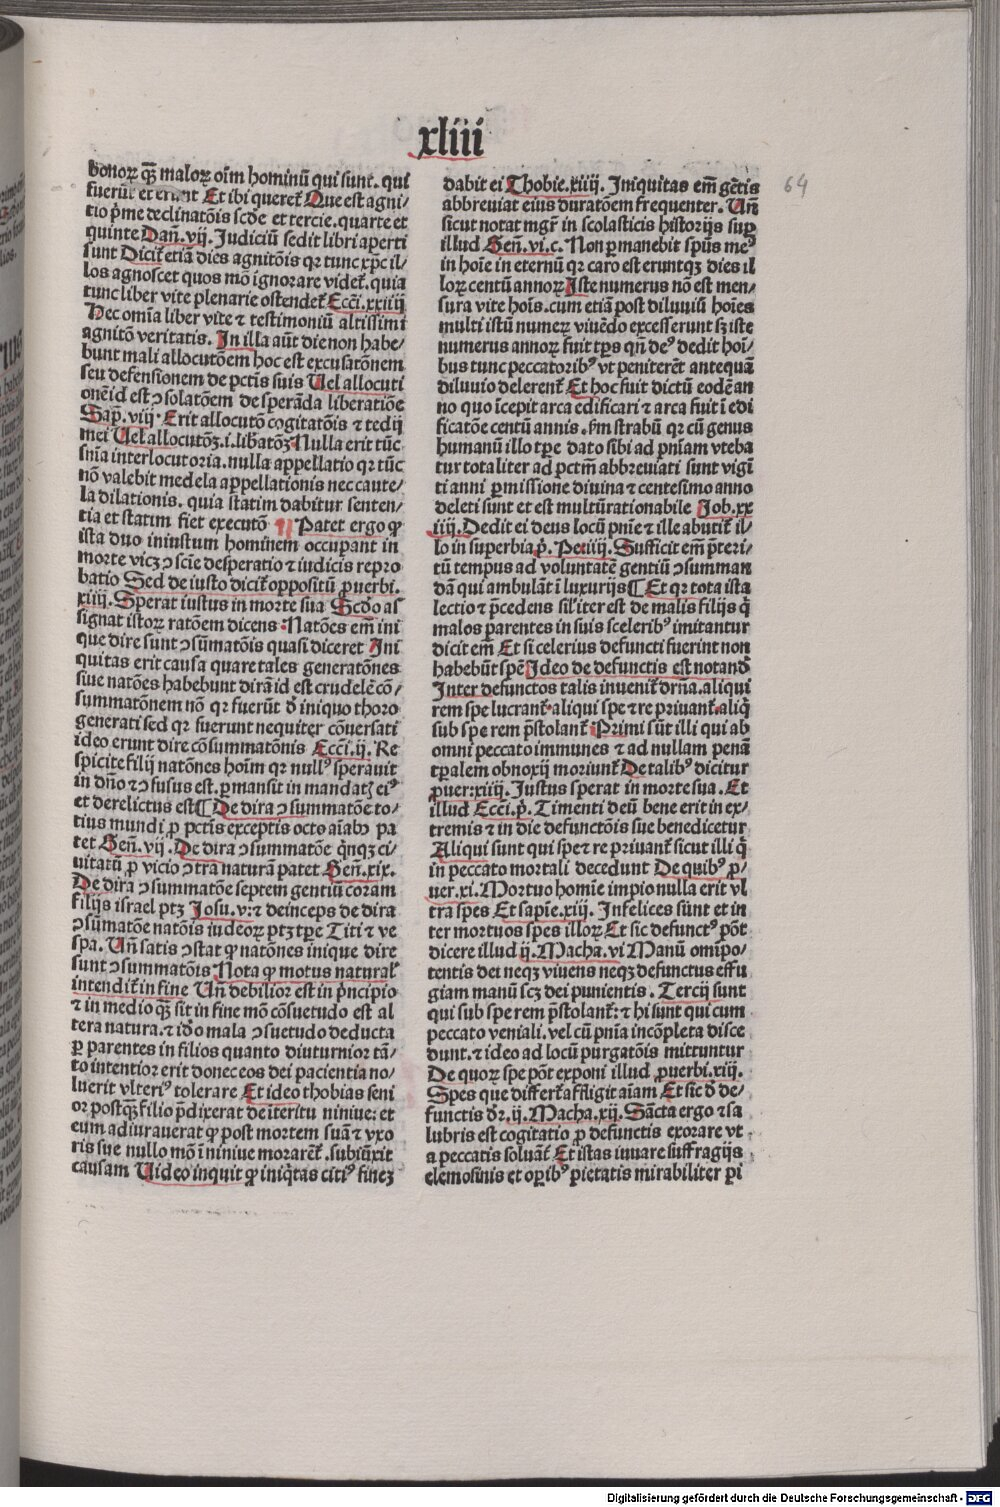 xliii
64
bonoꝝ qͣꝫ maloꝝ oīm hominū qui sunt. qui
fuerūt et erunt Et ibi queret᷑ Que est agni⸗
tio p̄me declinatōis scd̄e et tercie. quarte et
quinte Dan̄. vij. Judiciū sedit libri aperti
sunt Dicit᷑ etiā dies agnitōis qꝛ tunc xp̄c il⸗
los agnoscet quos mō ignorare videt᷑. quia
tunc liber vite plenarie ostendet᷑ Ecci̅. xxiiij
Hec omīa liber vite ⁊ testimoniū altissimi
agnitō veritatis. In illa aūt die non habe⸗
bunt mali allocutōem hoc est excusatōnem
seu defensionem de pctīs suis Uel allocuti
onē id est ꝯsolatōem de sperāda liberatiōe
Sap̄. viij. Erit allocutō cogitatōis ⁊ tedij
mei Uel allocutōꝫ .i. lib̄atōꝫ Nulla erit tūc
snīa interlocutoria. nulla appellatio qꝛ tūc
nō valebit medela appellationis nec caute⸗
la dilationis. quia statim dabitur senten⸗
tia et statim fiet executō ¶ Patet ergo ꝙ
ista duo iniustum hominem occupant in
morte vicꝫ ꝯscie desperatio ⁊ iudicis repro
batio Sed de iusto dicit᷑ oppositū ꝓuerbi.
xiiij. Sperat iustus in morte sua Scd̄o as
signat istoꝝ ratōem dicens Natōes em̄ ini
que dire sunt ꝯsūmatōis quasi diceret Ini
quitas erit causa quare tales generatōnes
siue natōes habebunt dirā id est crudelē cō⸗
summatōnem nō qꝛ fuerūt d̄ iniquo thoro
generati sed qꝛ fuerunt nequiter cōuersati
ideo erunt dire cōsummatōnis Ecci̅. ij. Re
spicite filij natōnes hoīm qꝛ nullꝰ sperauit
in dn̄o ⁊ ꝯfusus est. ꝑmansit in mandatꝭ eiꝰ
et derelictus est ¶ De dira ꝯsummatōe to⸗
tius mundi ꝓ pctīs exceptis octo aīabꝫ pa
tet Gen̄. vij. De dira ꝯsummatōe q̄nqꝫ ci⸗
uitatū ꝓ vicio ꝯtra naturā patet Gen̄. xix.
De dira ꝯsummatōe septem gentiū coram
filijs israel ptꝫ Josu. v: ⁊ deinceps de dira
ꝯsūmatōe natōis iudeoꝝ ptꝫ tꝑe Titi ⁊ ve
spa. Un̄ satis ꝯstat ꝙ natōnes inique dire
sunt ꝯsummatōis Nota ꝙ motus natural̄
intendit᷑ in fine Un̄ debilior est in p̄ncipio
⁊ in medio qͣꝫ sit in fine mō cōsuetudo est al
tera natura. ⁊ id̄o mala ꝯsuetudo deducta
ꝑ parentes in filios quanto diuturnior tā⸗
to intentior erit donec eos dei pacientia no⸗
luerit vlteriꝰ tolerare Et ideo thobias seni
or postqͣꝫ filio p̄dixerat de īteritu niniue: et
eum adiurauerat ꝙ post mortem suā ⁊ vxo
ris sue nullo mō ī niniue moraret᷑. subiūxit
causam Uideo inquit ꝙ iniq̄tas citiꝰ fineꝫ
dabit ei Thobie. xiiij. Iniquitas em̄ gētis
abbreviat eius duratōem frequenter. Un̄
sicut notat mgr̄ in scolasticis historijs suꝑ
illud Gen̄. vi. c. Non ꝑmanebit spūs meꝰ
in hoīe in eternū qꝛ caro est eruntqꝫ dies il
loꝝ centū annoꝝ Iste numerus nō est men⸗
sura vite hoīs. cum etiā post diluuiū hoīes
multi istū numeꝝ viuēdo excesserunt sꝫ iste
numerus annoꝝ fuit tꝑs qn̄ deꝰ dedit hoī⸗
bus tunc peccatoribꝰ vt peniterēt antequā
diluuio delerent᷑ Et hoc fuit dictū eodē an
no quo īcepit arca edificari ⁊ arca fuit ī edi
ficatōe centū annis. ẜm strabū qꝛ cū genus
humanū illo tꝑe dato sibi ad pn̄iam vteba
tur totaliter ad pctm̄ abbreuiati sunt vigī
ti anni ꝑmissione diuina ⁊ centesimo anno
deleti sunt et est multū rationabile Job. xx
iiij. Dedit ei deus locū pn̄ie ⁊ ille abutit᷑ il⸗
lo in superbia p̄. Pe. iiij. Sufficit em̄ p̄teri⸗
tū tempus ad voluntatē gentiū ꝯsumman
dā qui ambulāt ī luxurijs ¶ Et qꝛ tota ista
lectio ⁊ p̄cedens sil̄iter est de malis filijs q̄
malos parentes in suis sceleribꝰ imitantur
dicit em̄ Et si celerius defuncti fuerint non
habebūt spē Ideo de defunctis est notand̄
Inter defunctos talis inuenit᷑ drn̄a. aliqui
rem spe lucrant᷑. aliqui spe ⁊ re priuant᷑. aliq̄
sub spe rem p̄stolant᷑ Primi sūt illi qui ab
omni peccato immunes ⁊ ad nullam penā
tꝑalem obnoxij moriunt᷑ De talibꝰ dicitur
ꝓuer: xiiij. Justus sperat in morte sua. Et
illud Ecci̅. p̄. Timenti deū bene erit in ex⸗
tremis ⁊ in die defunctōis sue benedicetur
Aliqui sunt qui spe ⁊ re priuant᷑ sicut illi q̄
in peccato mortali decedunt De quibꝰ ꝓ⸗
uer. xi. Mortuo homīe impio nulla erit vl
tra spes Et sapīe. xiij. Infelices sūnt et in
ter mortuos spes illoꝝ Et sic defunctꝰ pōt
dicere illud ij. Macha. vi Manū omīpo⸗
tentis dei neqꝫ viuens neqꝫ defunctus effu
giam manū scꝫ dei punientis. Tercij sunt
qui sub spe rem p̄stolant᷑: ⁊ hi sunt qui cum
peccato veniali. vel cū pn̄ia incōpleta disce
dunt. ⁊ ideo ad locū purgatōis mittuntur
De quoꝝ spe pōt exponi illud ꝓuerbi. xiij.
Spes que differt᷑ affligit aīam Et sic d̄ de⸗
functis dr̄. ij. Macha. xij. Sācta ergo ⁊ sa
lubris est cogitatio ꝓ defunctis exorare vt
a peccatis soluāt᷑ Et istas iuuare suffragijs
elemosinis et oꝑibꝰ pietatis mirabiliter pi
Digitalisierung gefördert durch die Deutsche Forschungsgemeinschaft - DFG